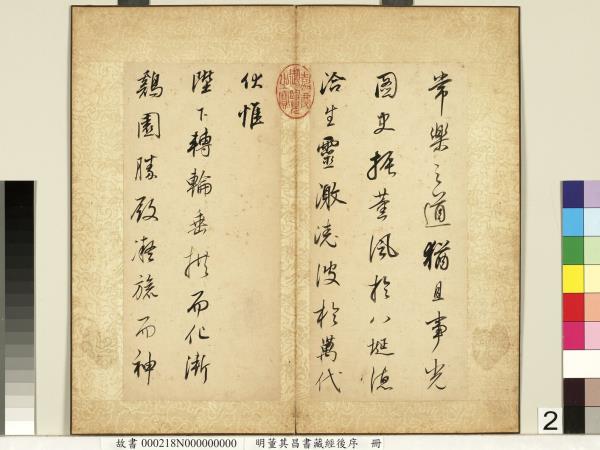 常樂之道猶且事光
圖史振薰風於八埏德
洽生靈激澆波於萬代
伏惟
陛下轉輪垂拱而化漸
鷄園勝殿凝旒而神
2
故書 000218N000000000 明董其昌書藏經後序 冊